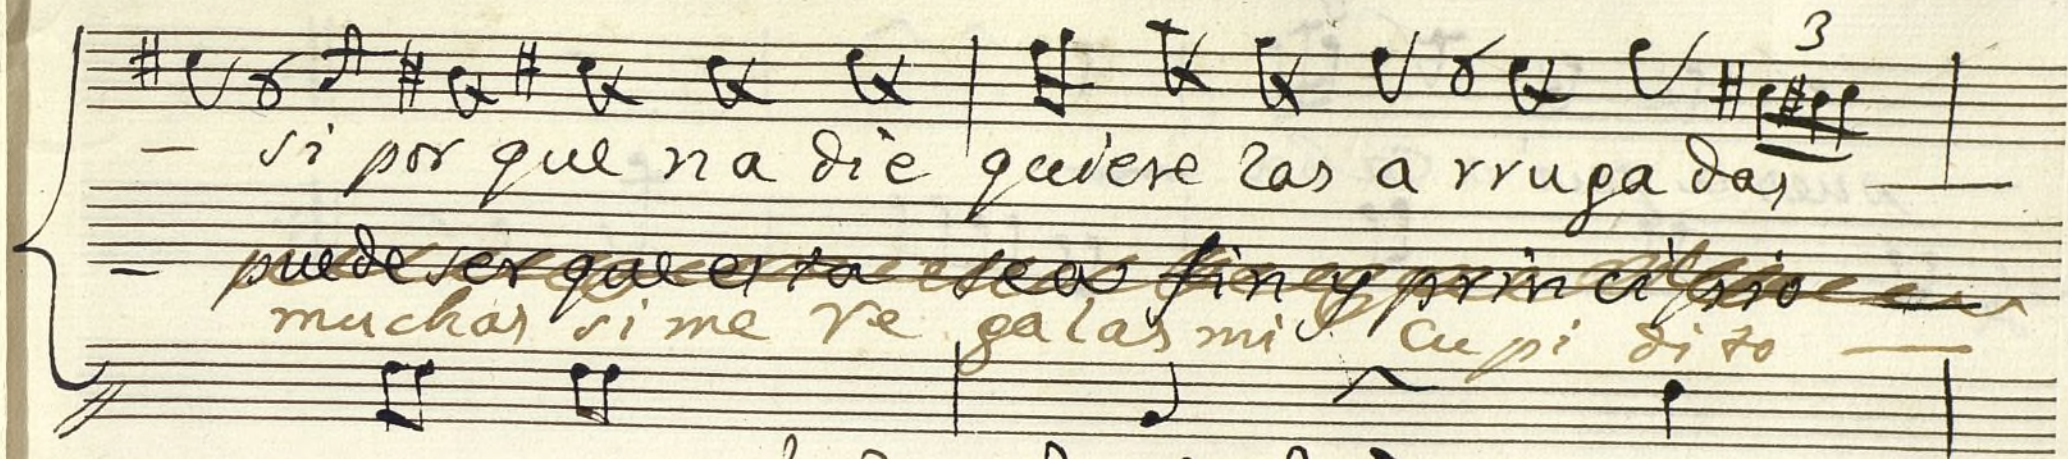 3
– si por que na die quiere las a rruga das —
– puede ser que esta sea fin y principio
muchas si me re galas mi cu pi dito —